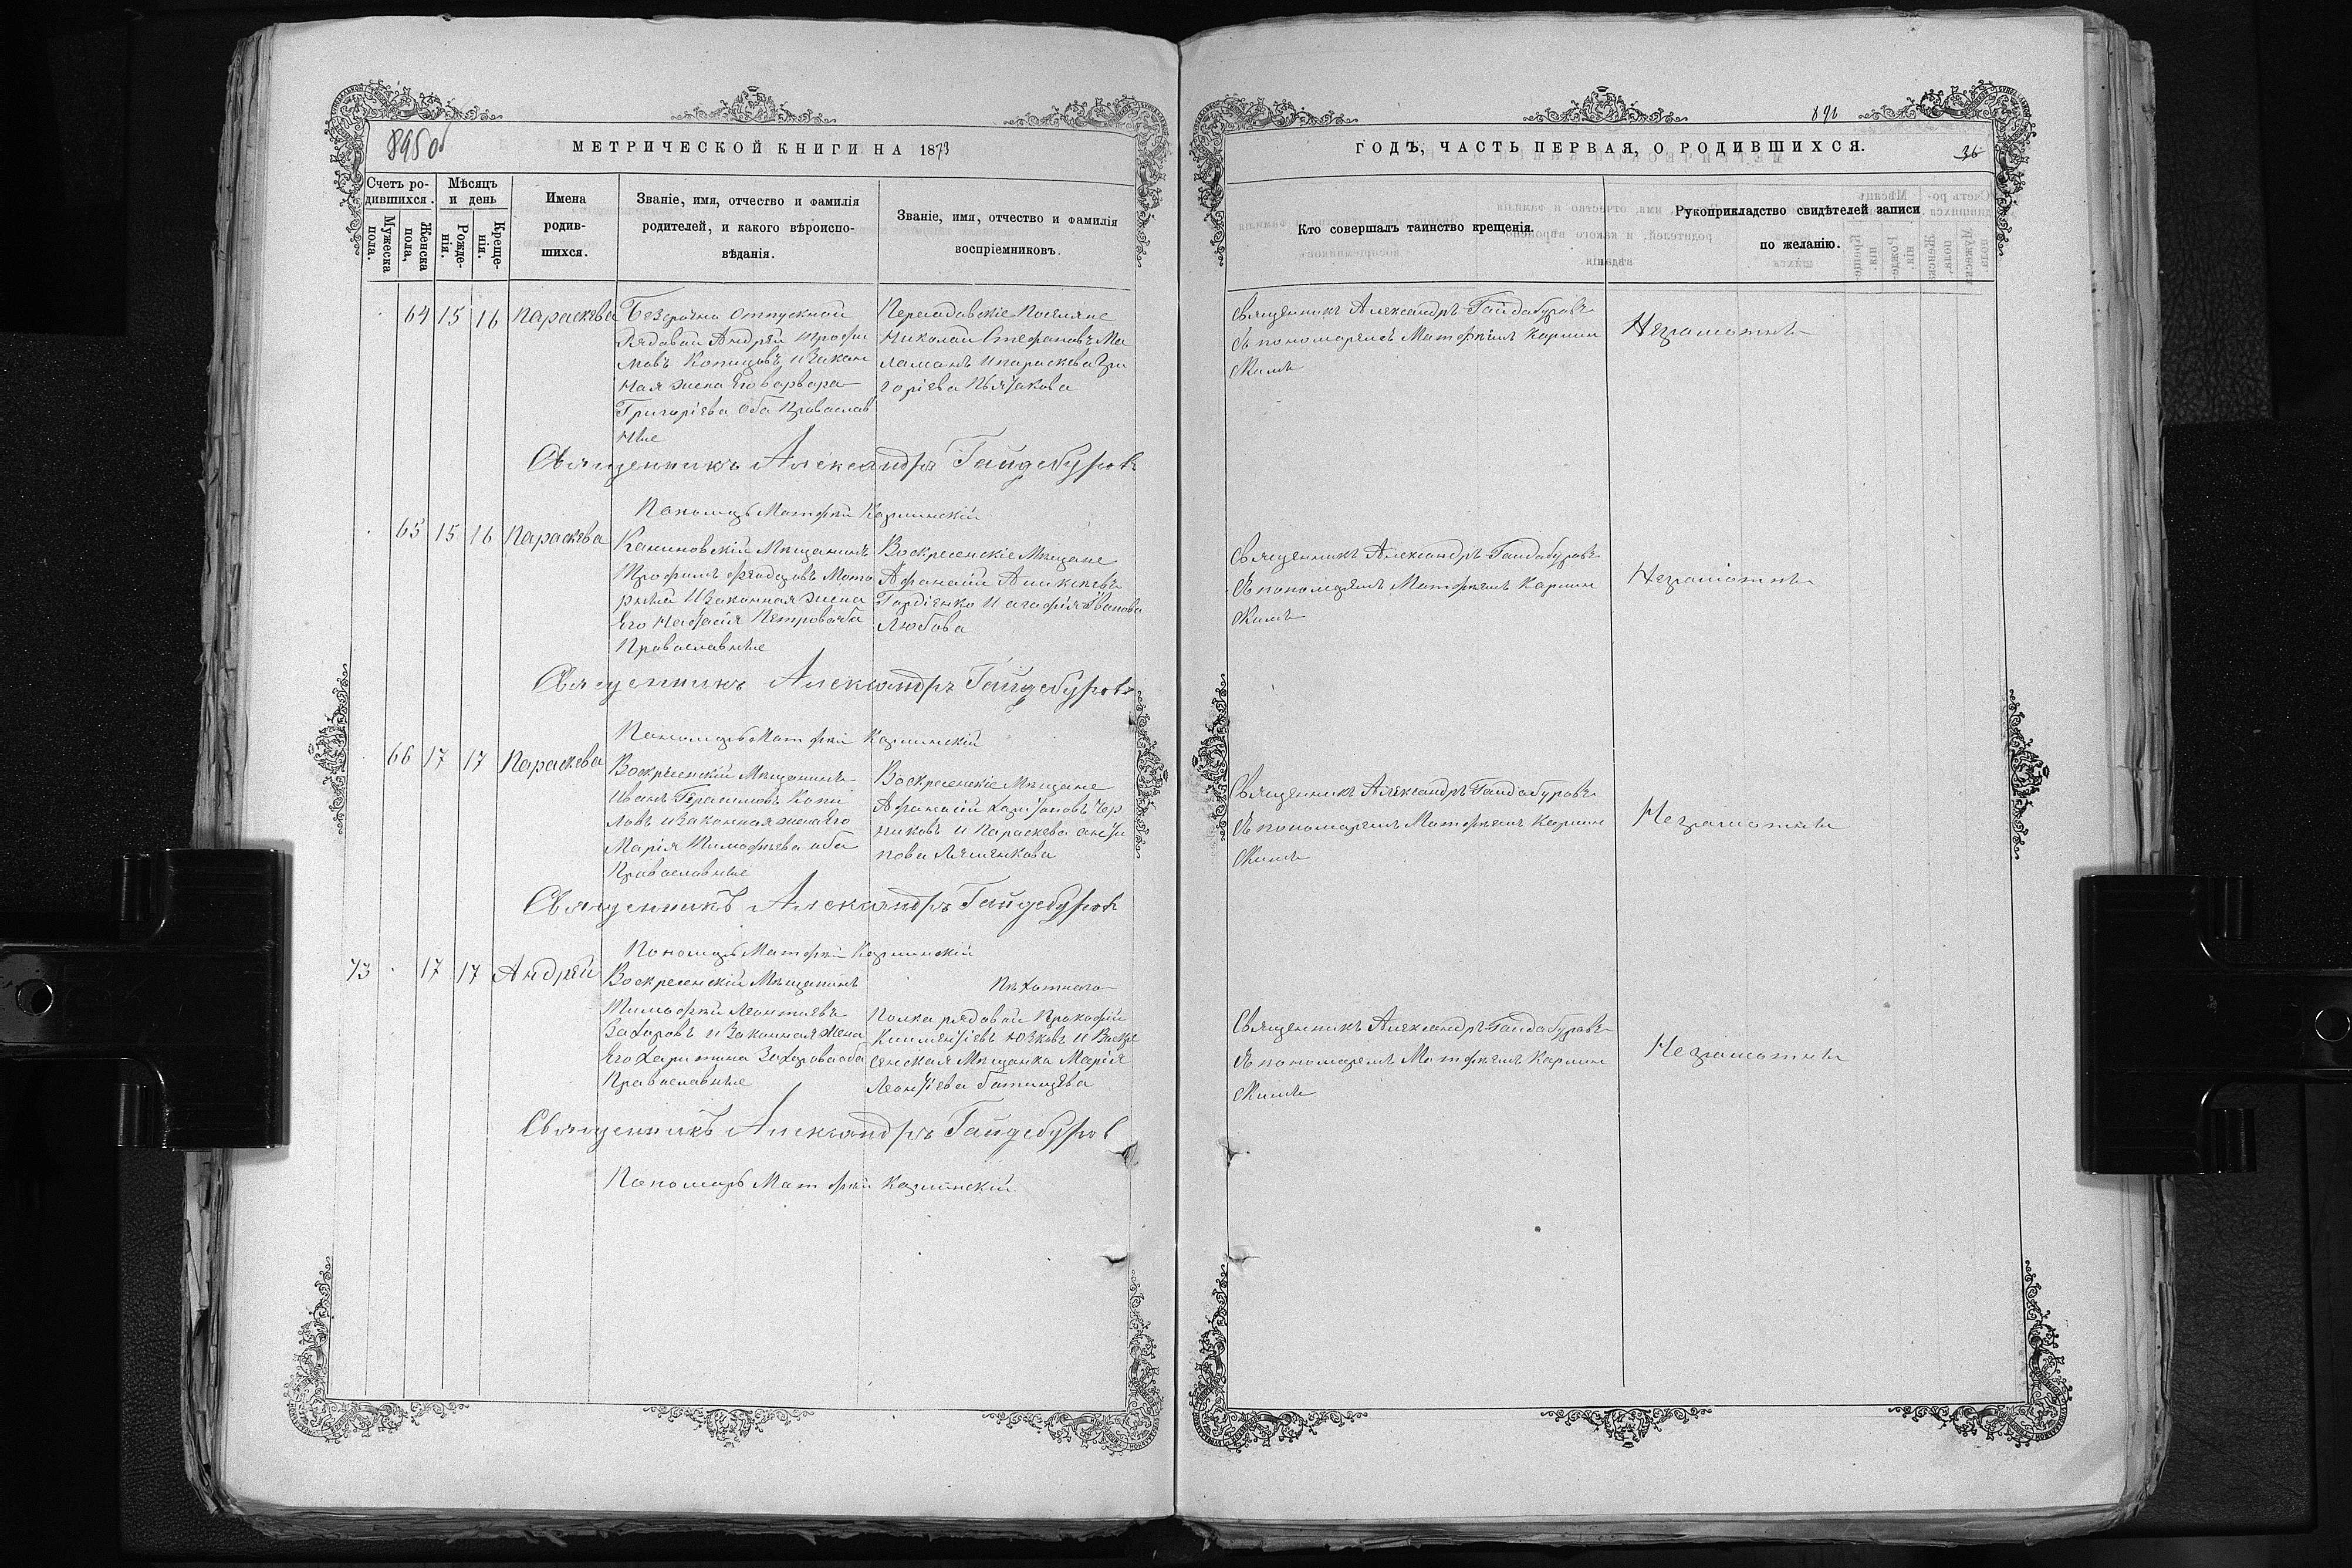 895об
МЕТРИЧЕСКОЙ КНИГИ НА 1873
Счетъ ро-
дившихся.
Мужеска
пола.
Женска
пола,
Мѣсяцъ
и день
Рожде-
нія.
Креще-
нія.
Имена
родив-
шихся.
Званіе, имя, отчество и фамилія
родителей, и какого вѣроиспо-
вѣданія.
Званіе, имя, отчество и фамилія
воспріемниковъ.
64 15 16 Параскева
Безсрочно отпускной
Рядовой Андрей Трофи
мовъ и Закон
ная жена Его Варвара
Григоріева оба Православ
ные
Поселяне
Николай Стефановъ Ма
ламанъ и Параскева Гри
горіева
Священникъ Александръ Гайдебуровъ
Пономарь Матфей Карминскій
65 15 16 Параскева
Мещанинъ
Трофимъ Феодоровъ Мото
рный и Законная жена
Его Петрова оба
Православные
Воскресенскіе Мещане
Афанасій Алексеевъ
Гордіенко и Агафія Иванова
Любова
Священникъ Александръ Гайдебуровъ
Пономарь Матфей Карминскій
66 17 17 Параскева
Воскресенскій Мещанинъ
Иванъ Герасимовъ Копи
ловъ и Законная жена Его
Марія Тимофеева оба
Православные
Воскресенскіе Мещане
Афанасій Харитоновъ Чер
никовъ и Параскева Анти
пова
Священникъ Александръ Гайдебуровъ
Пономарь Матфей Карминскій
73 17 17 Андрей
Воскресенскій Мещанинъ
Тимофей Леонтіевъ
Захаровъ и Законная жена
Его Харитина Захарова оба
Православные
Пехотнаго
Полка рядовой Прокофій
Климентіевъ и Воскре
сенская Мещанка Марія
Леонтіева
Священникъ Александръ Гайдебуров
Пономарь Матфей Карминскій
896
ГОДЪ, ЧАСТЬ ПЕРВАЯ, О РОДИВШИХСЯ.
36
Кто совершалъ таинство крещенія.
Рукоприкладство свидѣтелей записи
по желанію.
Священникъ Александръ Гайдабуровъ
съ пономаремъ Матфеемъ Кармин
скимъ
Неграмотны
Священникъ Александръ Гайдабуровъ
съ пономаремъ Матфеемъ Кармин
скимъ
Неграмотны
Священникъ Александръ Гайдабуровъ
съ пономаремъ Матфеемъ Кармин
скимъ
Неграмотны
Священникъ Александръ Гайдабуровъ
съ пономаремъ Матфеемъ Кармин
скимъ
Неграмотны